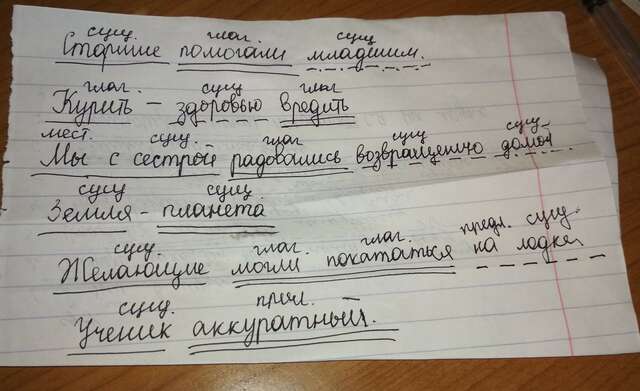 сущ. глаг. сущ
Старшие помогали младшим.
глаг. сущ глаг
Курить - здоровью вредить
мест. сущ. глаг сущ сущ.
Мы с сестрой радовались возвращению домой.
сущ сущ.
Земля - планета.
сущ. глаг. глаг. предл. сущ.
Желающие могли покататься на лодке.
сущ. прил.
Ученик аккуратный.